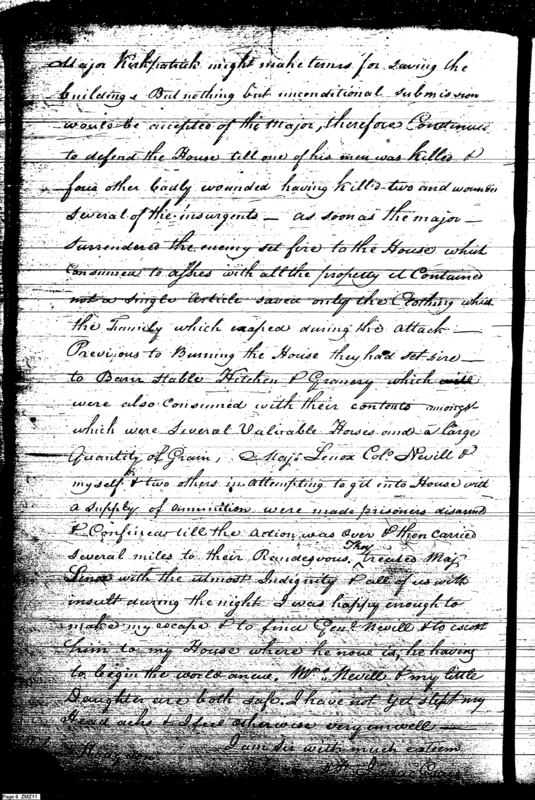 Major Kirkpatrick might make terms for saving the
buildings But nothing but unconditional submission
would be accepted of the Major, therefore Continued
to defend the House till one of his men was killed &
four other badly wounded having kill'd two and wounded
several of the insurgents — as soon as the major —
surrendered the enemy set fire to the House which
Consumed to ashes with all the property it Contained
not a single Article saved only the Clothing which
the Family which escaped during the attack —
Previous to Burning the House they had set fire —
to Barn Stable Kitchen & Granery which
were also consumed with their contents amongst
which were Several Valuable Horses and a large
Quantity of Grain, Majr Lenox Colo. Nevill &
myself & two others in attempting to git into House with
a supply of ammunition were made prisoners disarmed
& Confined till the Action was over & then carried
several miles to their Randesvous. They treated Maj
Lenox with the utmost Indignity & all of us with
insult during the night I was happy enough to
make my escape & to find Genl Nevill & to escort
him to my House where he now is, he having
to begin the world anew. Mrs. Nevill & my little
Daughter are both safe. I have not yet slept my
Head achs & I feel otherwise very unwell —
I am Sir with much esteem
Page 6 2MZ11